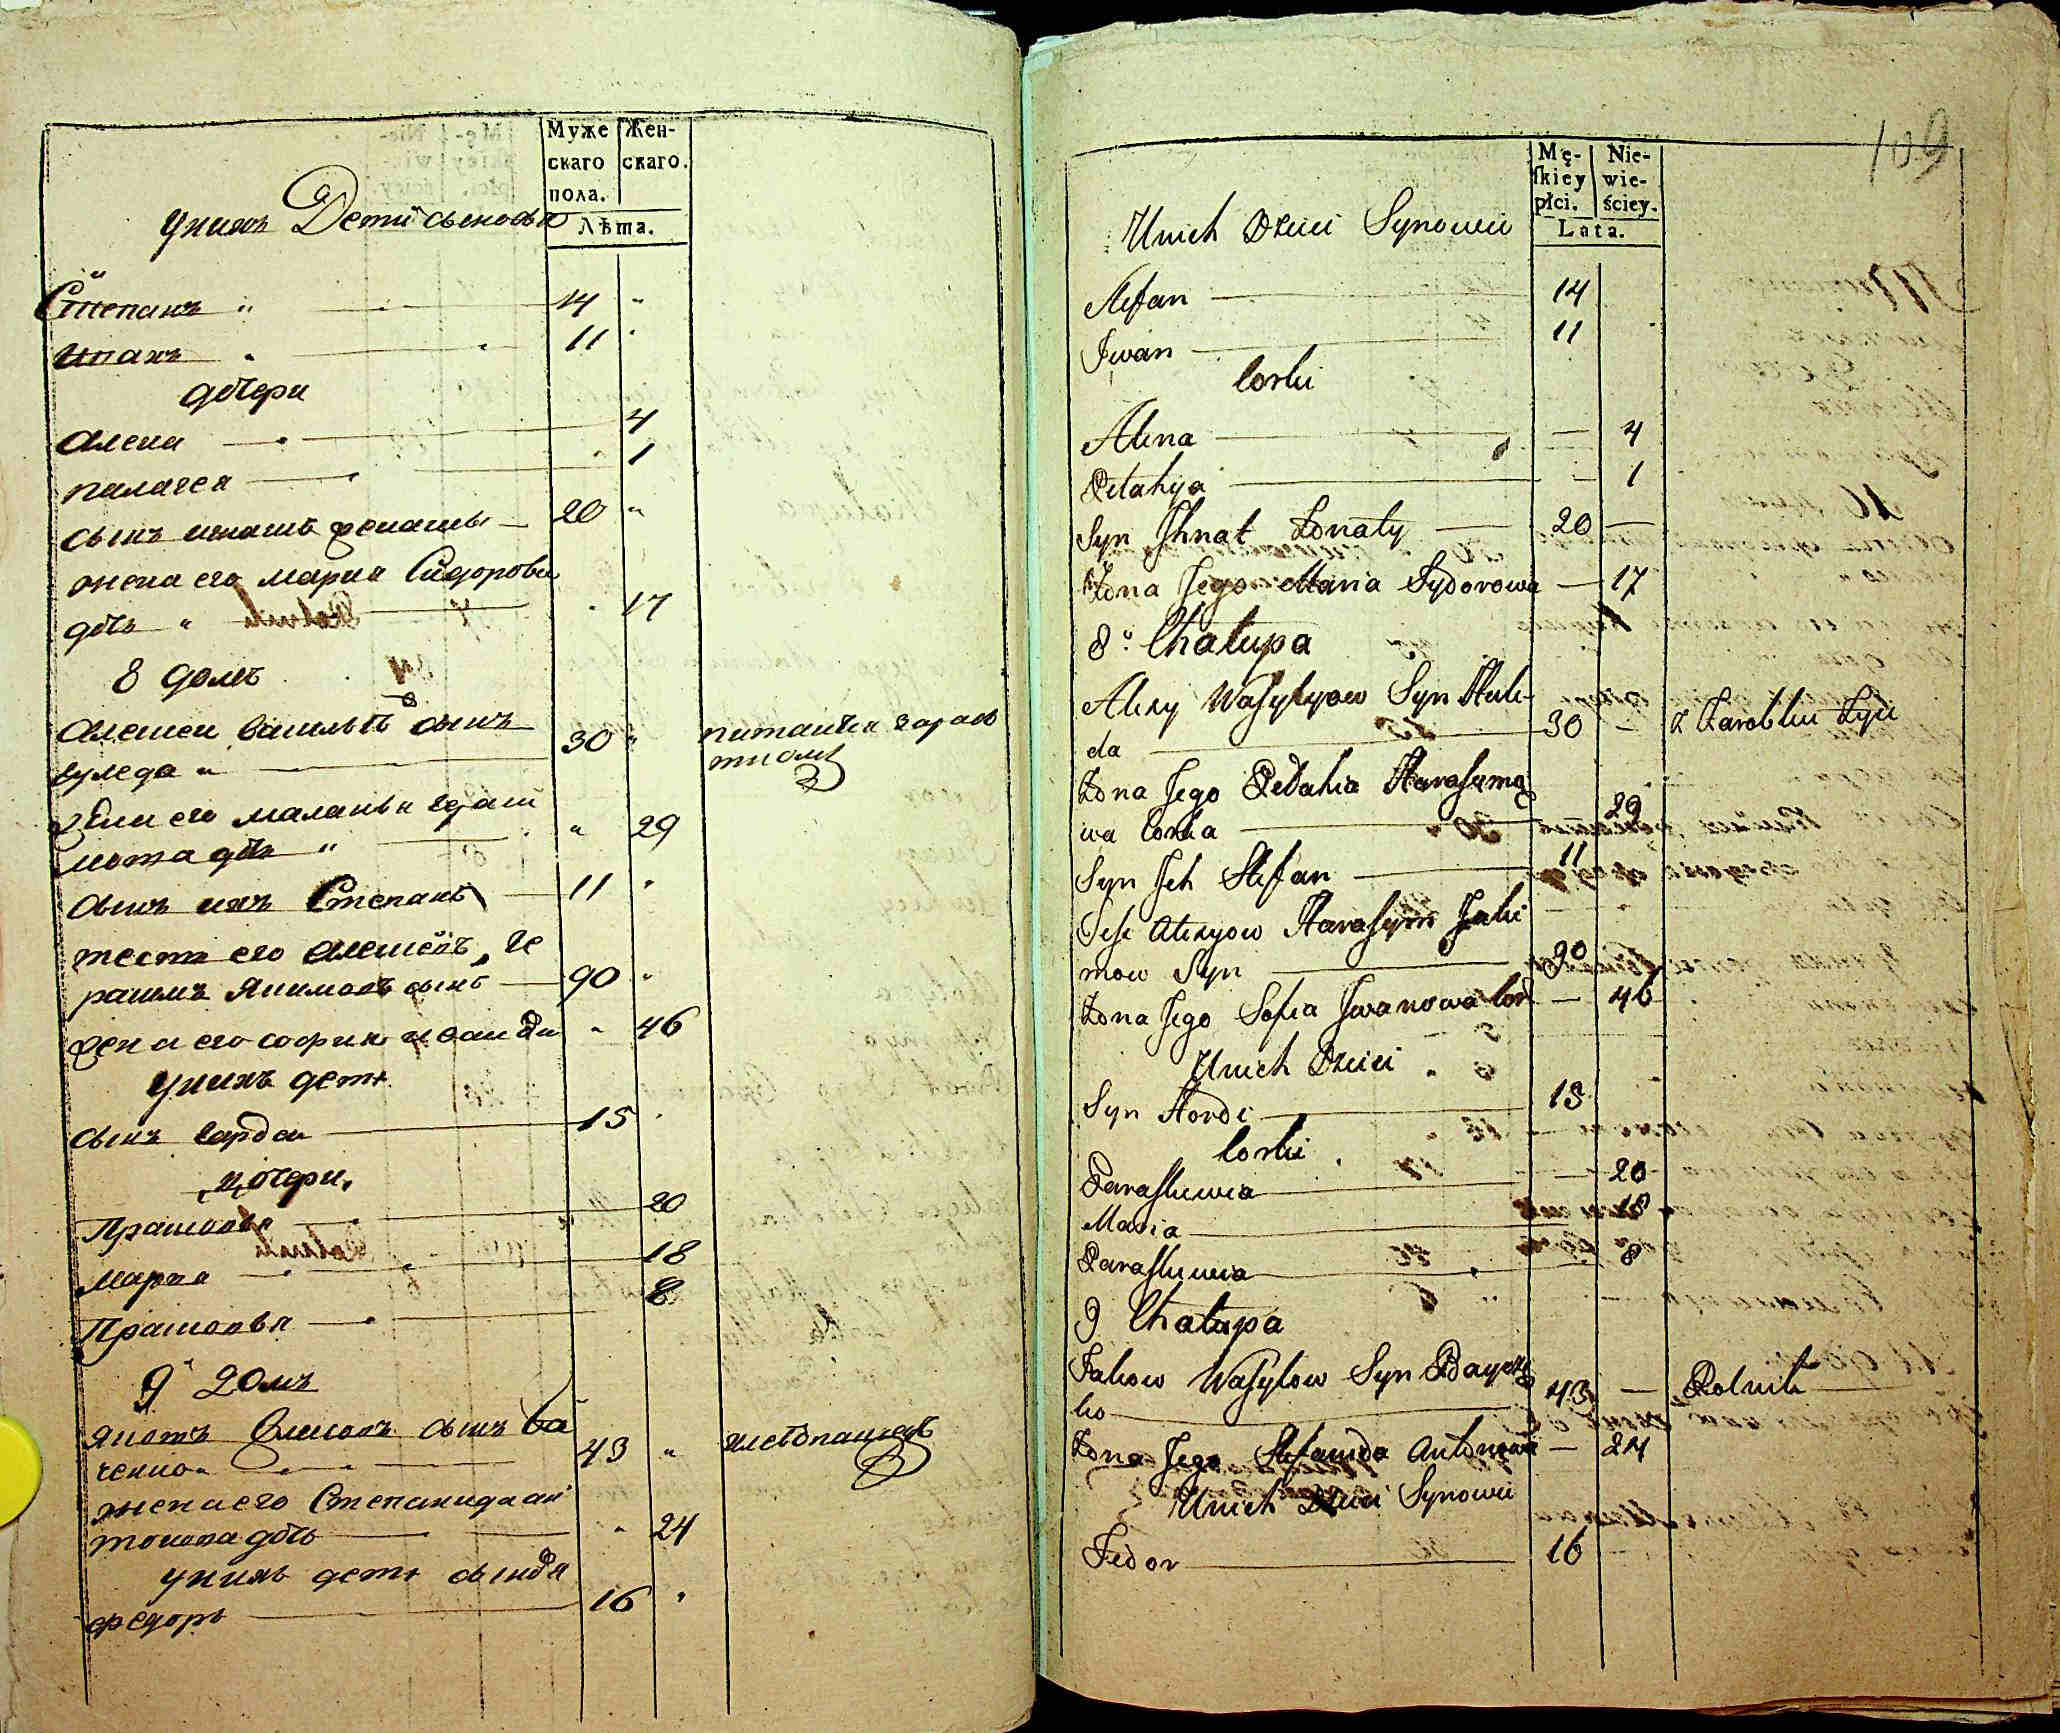 Муже
скаго
пола.
Жен-
скаго.
Лѣта.
унихъ Дети сыновья
Степанъ 14
Иванъ 11
дочери
Алена 4
палагея 1
сынъ игнатъ 20
жена его мария Сидорова
дчь 17
8 домъ
Алексей василевъ сынъ
гуледа 30
жена его маланья гараси
мова дчь 29
сынъ ихъ Степанъ 11
тесть его алексеевъ, Ге
расимъ Якимовъ сынъ 90
жена его софия иван 46
унихъ дети
сынъ гордеи 15
дочери
Прасковья 20
Мария 18
Прасковья 8
9 домъ
Яковъ Василовъ сынъ ба
ченко 43 хлебопашецъ
жена его Степанида ан
тонова дчь 24
унихъ дети сыновя
Федоръ 16
109
Mę-
ſkiey
płci.
Nie-
wie-
ściey.
Lata.
Unich Dzieci Synowie
Stefan 14
Iwan 11
Corki
Alena 4
Pelahija 1
Syn Jhnat Konaty 20
Żona Jego Maria Sydorowa 17
8 Chałupa
Alexy Wasylyow Syn Hule-
da 30 z Zarobku Żyie
Żona Jego Pelahia Harasymo
wa Corka 29
Syn Jch Stefan 11
Teść Alexyow Harasym Jaki
mow Syn 90
Żona Jego Sofia Jwanowa Cor 46
Unich Dzieci
Syn Hordi 15
Corki
Paraskiewia 20
Maria 18
Paraskiewia 8
9 Chałupa
Jakow Wasylow Syn Bayczen
ko 43 Rolnik
Żona Jego Stefanida Antonowa 24
Unich Dzieci Synowie
Fedor 16